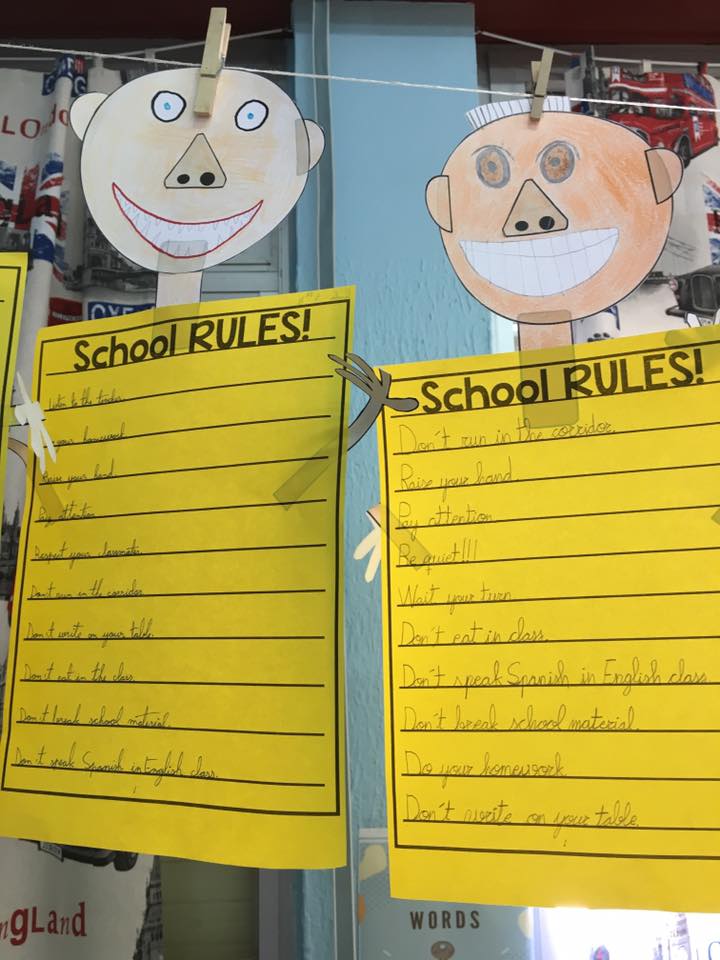 School RULES!
Listen to the teacher.
your homework
Raise your hand
Pay attention
Respect your classmates.
Don't run in the corridor.
Don't write on your table.
Don't eat in the class.
Don't break school material.
Don't speak Spanish in English class.
School RULES!
Don't run in the corridor.
Raise your hand.
Pay attention
Be quiet!!!
Wait your turn
Don't eat in class.
Don't speak Spanish in English class.
Don't break school material.
Do your homework
Don't write on your table.
WORDS